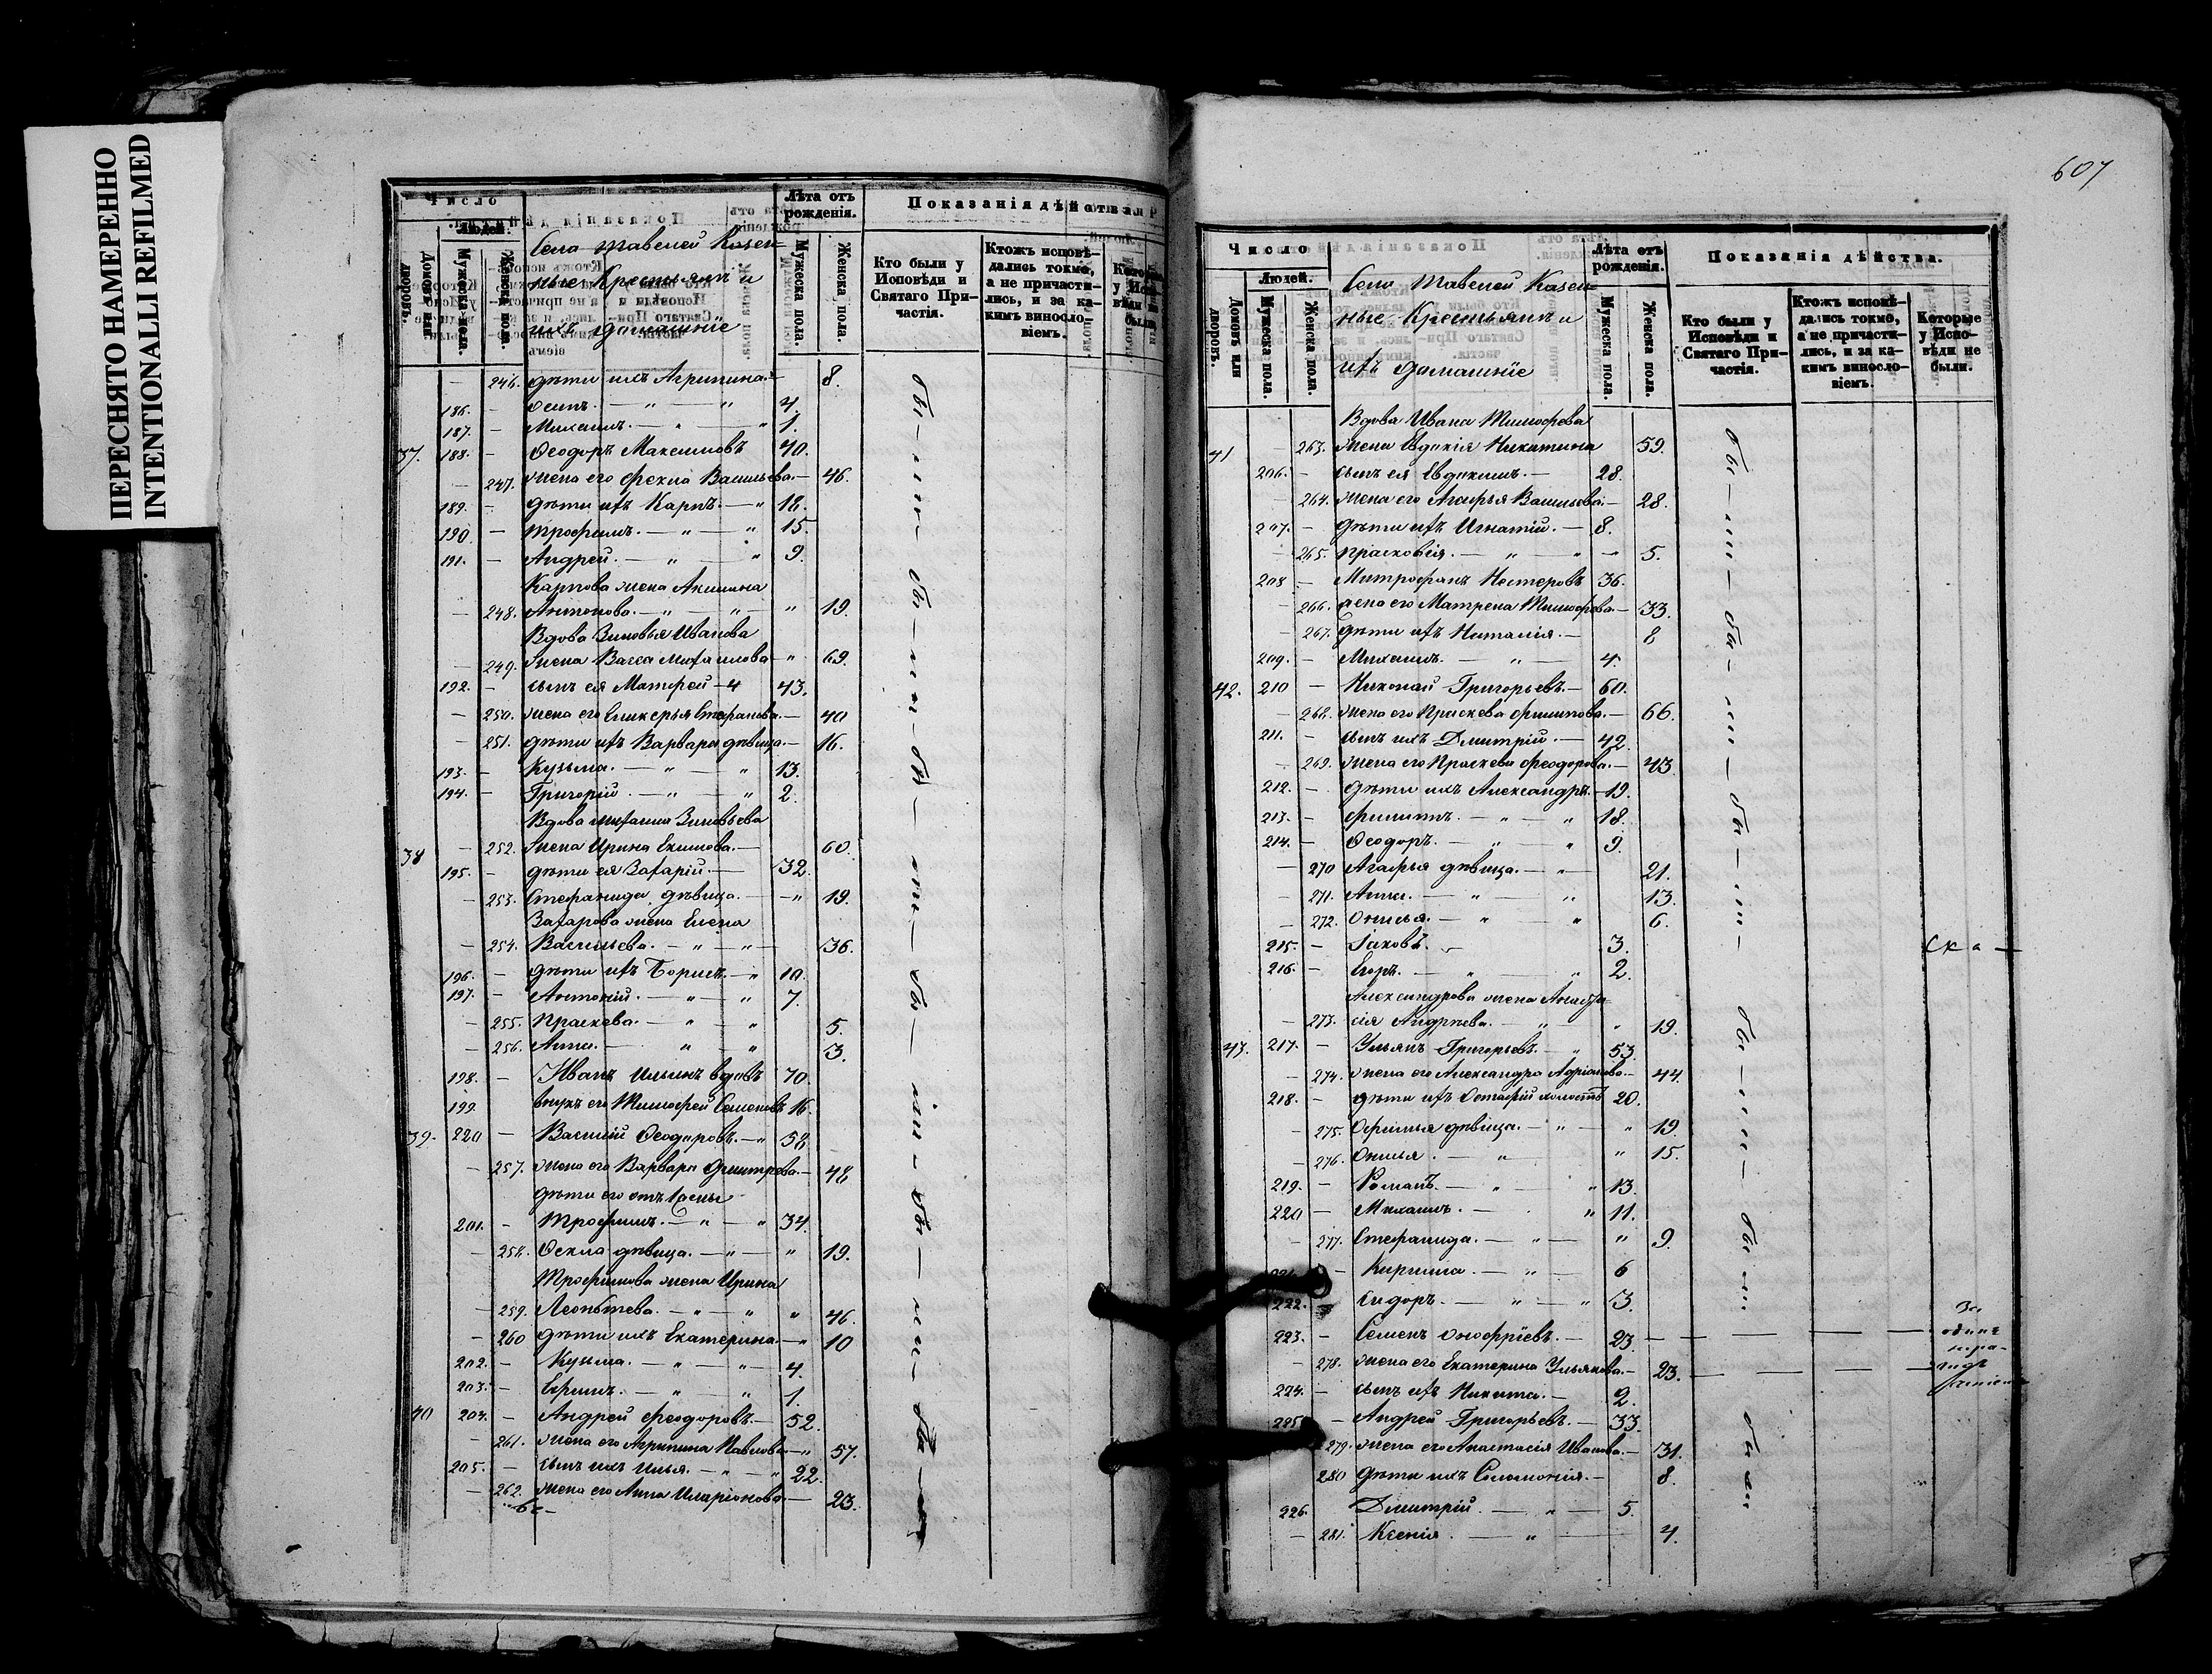 ПЕРЕСНЯТО НАМЕРЕННО
INTENTIONALLI REFILMED
607
Число
Людей.
Домовъ или дворовъ.
Мужеска пола.
Женска пола.
Села Тавелей Казен-
ные Крестьянъ и
ихъ домашніе
Лѣта отъ рожденія.
Мужеска пола.
Женска пола.
Показанія дѣйства
Кто были у Исповѣди и Святаго Причастія.
Ктожъ исповѣ-
дались токмо,
а не причасти-
лись, и за ка-
кимъ винословіемъ.
246. дѣти ихъ Агрипина 8.
186. – Осипъ. – " – " 4.
187. – Михаилъ. – " – " 1.
37. 188. – Ѳеодоръ Максимовъ 40.
– 247. жена его Фекла Васильева – 46.
189. – дѣти ихъ Карпъ. – " 18.
190 – Трофимъ. – " – " 15.
191. – Андрей. – " – " 9.
Карпова жена Акилина
– 248. Антонова. – " – " – " 19.
Вдова Зиновья Иванова
– 249. жена Васса Михаилова – " 69.
192. – сынъ ея Матфей – 43.
– 250. жена его Гликерья Стефанова. – 40
– 251. дѣти ихъ Варвара дѣвица. – 16.
193. – Кузьма. – " – " 13.
194. – Григорій. – " – " 2.
Вдова Михаила Зиновьева
38 – 252. жена Ирина Екимова. – 60.
195. – дѣти ея Захарій. – 32.
– 253. Стефанида дѣвица. – " 19.
Захарова жена Елена
– 254. Васильева. – " – " – 36.
196. – дѣти ихъ Борисъ. – " 10.
197. – Антоній. – " – " 7.
– 255. Праскева. – " – " 5.
– 256. Анна. – " – " 3.
198. – Иванъ Ильинъ вдовъ 70.
199. внукъ его Тимофей Семеновъ 16.
39. 220 – Василій Ѳеодоровъ. – " 58.
– 257. жена его Варвара Дмитрева. – 48
дѣти его отъ 1 жены
201. – Трофимъ. – " – " 34.
– 258. Ѳекла дѣвица. – " – " 19.
Трофимова жена Ирина
– 259. Леонтьева. – " – " " 46.
– 260 дѣти ихъ Екатерина. – " 10
202. – Кузьма. – " – " – 4.
203. – Ефимъ. – " – " 1.
40 204. – Андрей Феодоровъ. – 52.
– 261. жена его Агрипина Павлова – " 57.
205. – сынъ ихъ Илья. – " – " 22.
– 262. жена его Анна Иларіонова – 23.
Число
Людей.
Домовъ или дворовъ.
Мужеска пола.
Женска пола.
Села Тавелей Казен-
ные Крестьянъ и
ихъ домашніе
Лѣта отъ рожденія.
Мужеска пола.
Женска пола.
Показанія дѣйства.
Кто были у Исповѣди и Святаго Причастія.
Ктожъ исповѣ-
дались токмо,
а не причасти-
лись, и за ка-
кимъ винословіемъ.
Которые у Исповѣди не были.
Вдова Ивана Тимофева
41 – 263. жена Евдокія Никитина 59.
206. – сынъ ея Евдокимъ. – 28.
– 264. жена его Агафья Васильева. – 28.
207. – дѣти ихъ Игнатій. – 8.
– 265. Прасковія. – " – " – 5.
208 – Митрофанъ Нестеровъ 36.
– 266. жена его Матрена Тимофева. – 33.
– 267. дѣти ихъ Наталія. – 8
209. – Михаилъ. – " – 4.
42. 210 – Николай Григорьевъ. – 60.
– 268. жена его Праскева Филипова. – 66.
211. – сынъ ихъ Дмитрій. – 42.
– 269. жена его Праскева Феодорова. – 43.
212. – дѣти ихъ Александръ. – 19.
213. – Филиппъ. – " – " 18.
214. – Ѳеодоръ. – " – " 9.
– 270 Агафья дѣвица. – " – 21.
– 271. Анна. – " – " 13.
– 272. Онисья. – " – " 6.
215. – Іаковъ. – 3.
216. – Егоръ. – " – " 2.
Александрова жена Анаста-
– 273. сія Андрѣева. – " – " 19.
43. 217. – Ульянъ Григорьевъ. – " 53.
– 274. жена его Александра Адріанова – 44.
218. – дѣти ихъ Остафій холостъ 20.
– 275. Офимья дѣвица. – " – " 19.
– 276. Онисья. – " – " 15.
219. – Романъ. – " – " 13.
220 – Михаилъ. – " 11.
– 277. Стефанида. – " – " 9.
– Кирилла. – " – 6
222. Сидоръ. – " – " 3.
223. – Семенъ Онофріевъ. – 23. – – – – –
За
одинъ
– 278. жена его Екатерина Ульянова. – 23. – – – –
224. – сынъ ихъ Никита. – 2.
225 – Андрей Григорьевъ. – 33.
279. жена его Анастасія Иванова. – 31.
280 дѣти ихъ Соломонія. – 8.
226. Дмитрій. – " – 5.
– 281. Ксенія. – " – 4.